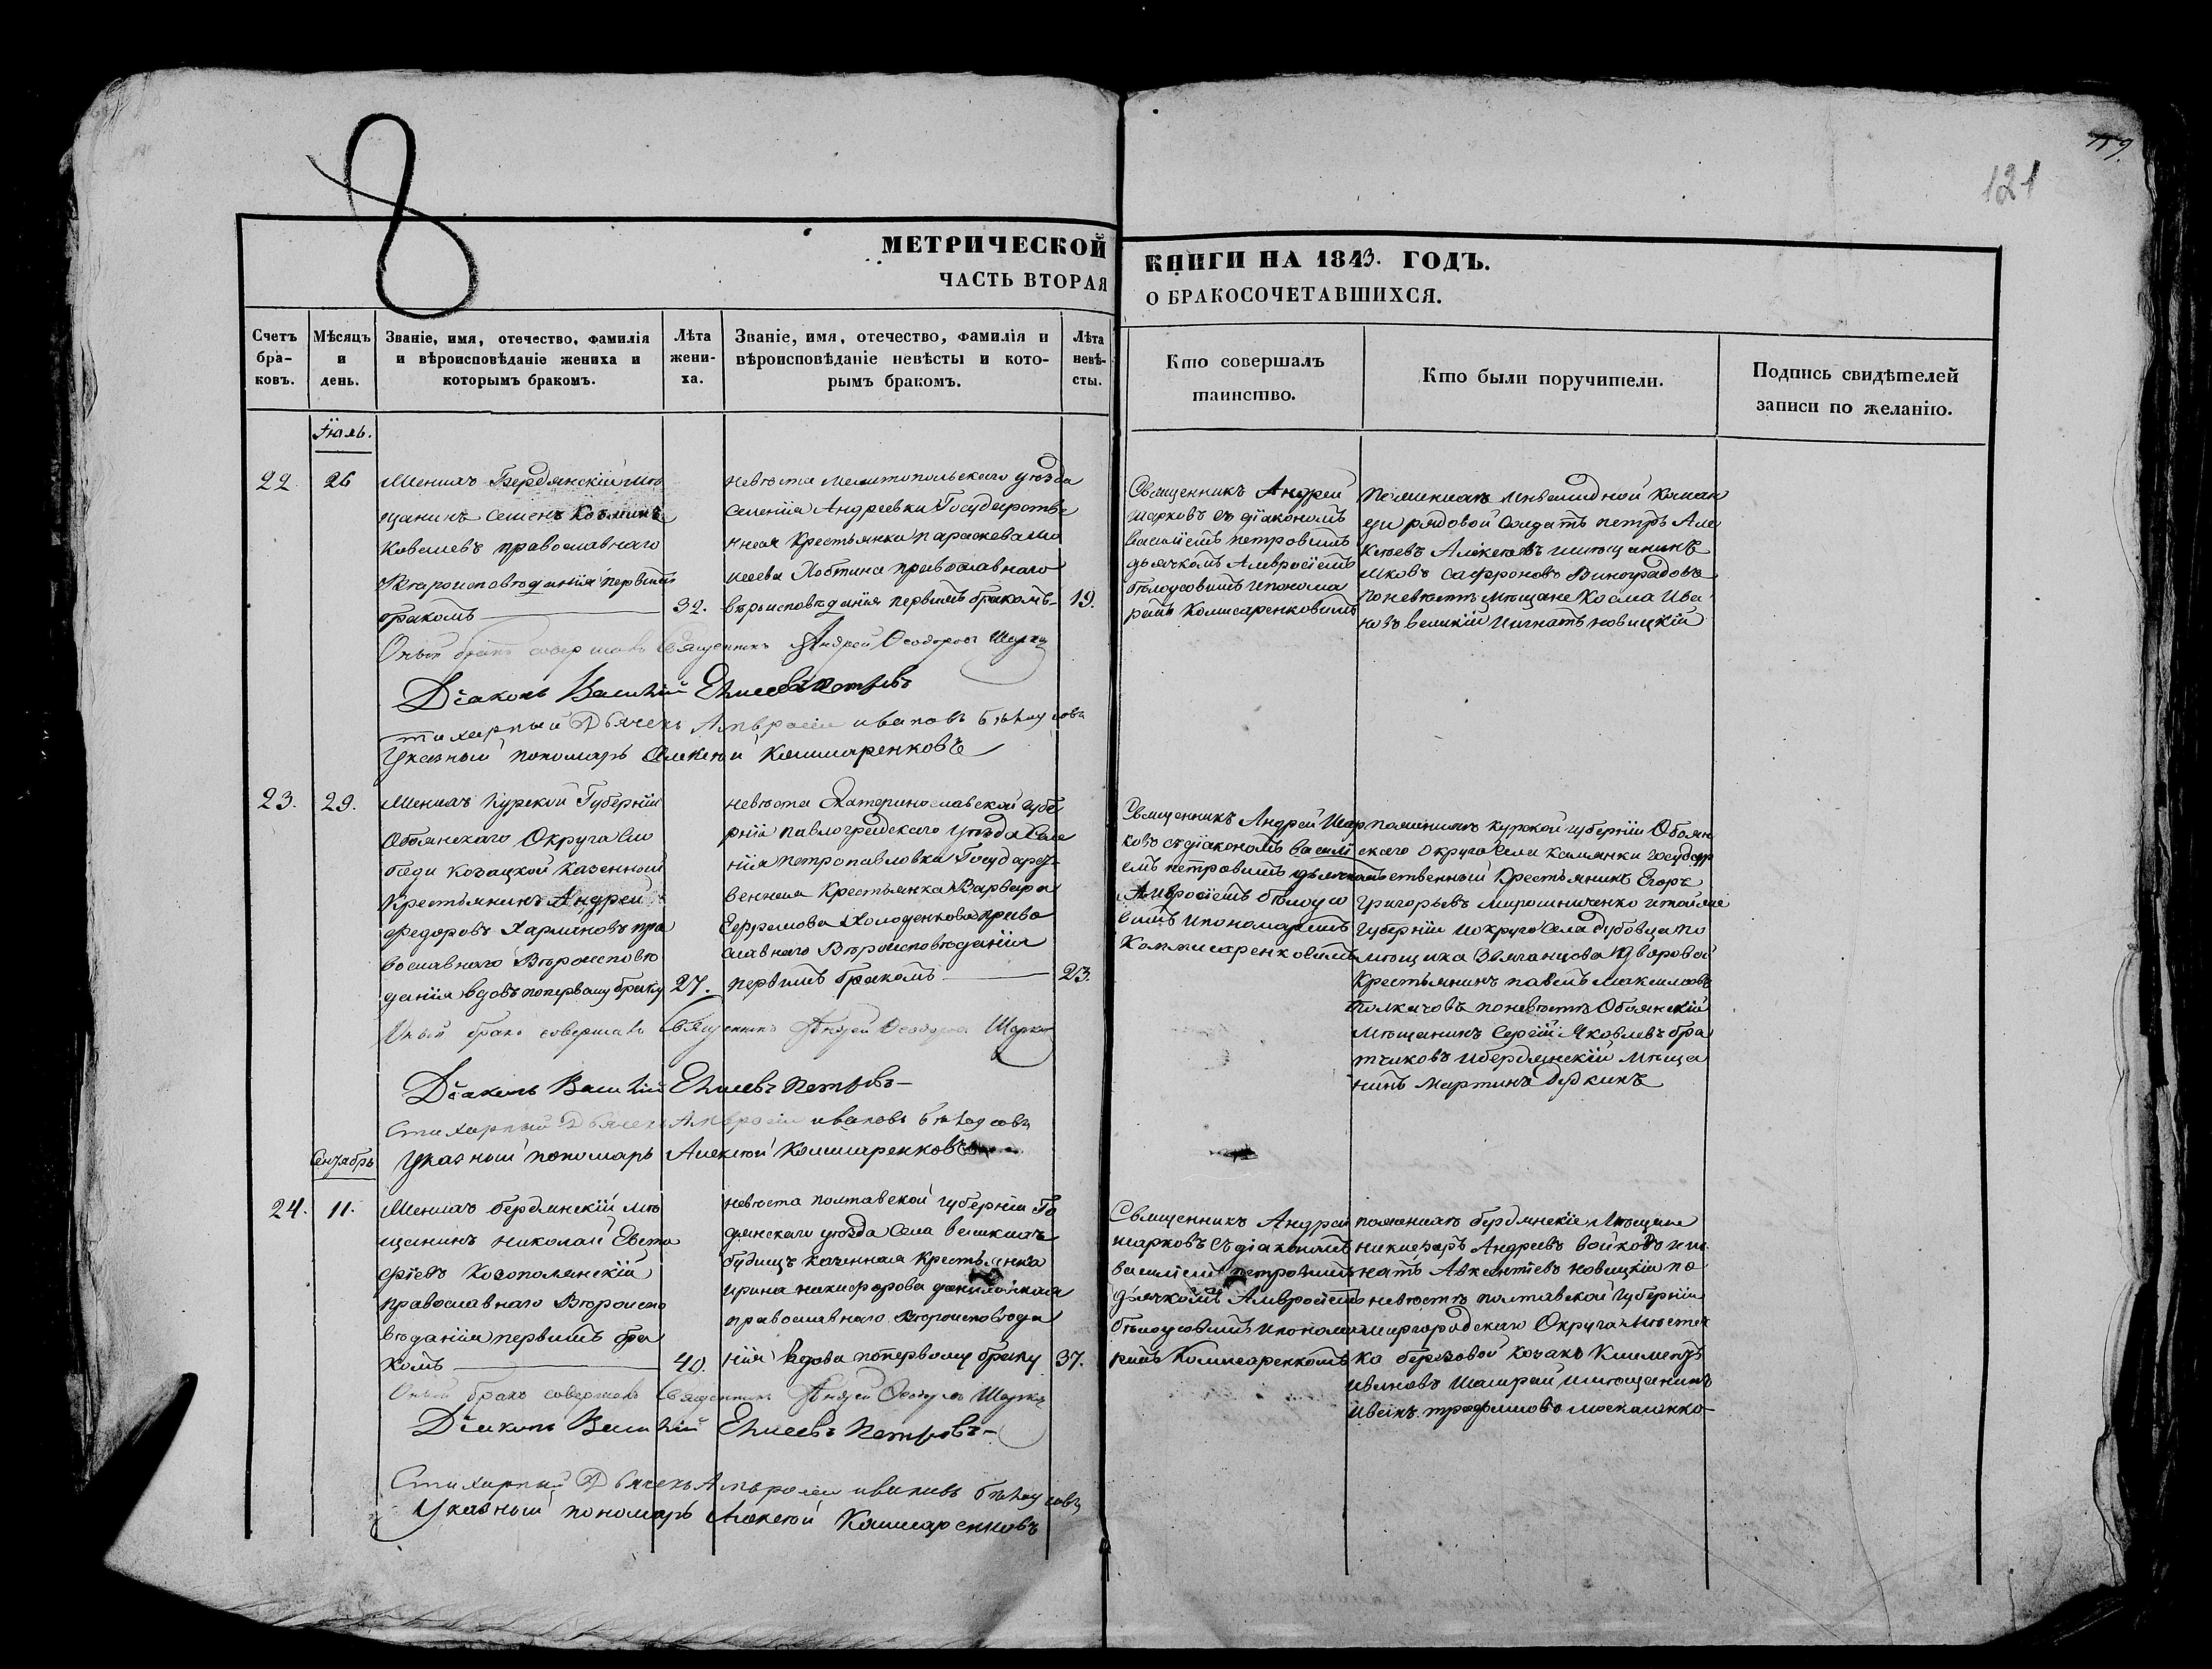 8
159.
121
МЕТРИЧЕСКОЙ КНИГИ НА 1843. ГОДЪ.
ЧАСТЬ ВТОРАЯ О БРАКОСОЧЕТАВШИХСЯ.
Счетъ бра-ковъ.
Мѣсяцъ и день.
Званіе, имя, отечество, фамилія
и вѣроисповѣданіе жениха и
которымъ бракомъ.
Лѣта жени-ха.
Званіе, имя, отечество, фамилія и
вѣроисповѣданіе невѣсты и кото-
рымъ бракомъ.
Лѣта невѣ-сты.
Кто совершалъ
таинство.
Кто были поручители.
Подпись свидѣтелей
записи по желанію.
Іюль.
22.
26
Женихъ Бердянскій мѣ
щанинъ Семенъ Козминъ
Ковалевъ православнаго
вѣроисповѣданія первымъ
бракомъ
32.
Невѣста Мелитопольскаго уѣзда
Селенія Андреевки Государстве
нная крестьянка Параскева
Хобтина православнаго
вѣроисповѣданія первымъ бракомъ
19.
Священникъ Андрей
Шарковъ съ діакономъ
Василіемъ Петровымъ
дьячкомъ Амвросіемъ
бѣлоусовымъ и понома
ремъ Комисаренковымъ
По женихѣ инвалидной коман
ды рядовой Солдатъ Петръ Але
ксѣевъ Алексѣевъ и мѣщанинъ
Яковъ Сафроновъ Виноградовъ
по невѣстѣ мѣщане Косма Ива
новъ великій и Игнатъ новицкій
Оный бракъ совершалъ Священникъ Андрей Ѳеодоровъ Шарковъ
Діаконъ Василій Елисеевъ Петровъ
Стихарный Дьячекъ Амвросій ивановъ бѣлоусовъ
Указный пономарь Алексѣй Коммисаренковъ
23.
29.
Женихъ Курской Губерніи
Обоянскаго Округа Сло
боды Козацкой Казенный
Крестьянинъ Андрей
Федоровъ Харлановъ пра
вославнаго Вѣроисповѣ
данія вдовъ по первому браку
27.
Невѣста Екатеринославской губе
рніи Павлоградскаго Уѣзда Селе
нія Петропавловки Государст
венная Крестьянка Варвара
Ефремова Холоденкова право
славнаго Вѣроисповѣданія
первымъ бракомъ
23.
Священникъ Андрей Шар
ковъ съ діакономъ Василі
емъ Петровымъ дьячкомъ
Амвросіемъ бѣлоусо
вымъ и пономаремъ
Коммисаренковымъ
По женихѣ Курской губерніи Обоян
скаго Округа Села Камянки Государ
ственный Крестьянинъ Егоръ
Григорьевъ Мирошниченко и той же
Губерніи и округа Села дубовца По
мѣщика Дворовой
Крестьянинъ Павелъ Максимовъ
Толкачовъ по невѣстѣ Обоянскій
Мѣщанинъ Сергій Яковлевъ бра
тчиковъ и бердянскій Мѣща
нинъ Мартинъ дудкинъ
Оный бракъ совершалъ Священникъ Андрей Ѳеодоровъ Шарковъ
Діаконъ Василій Елисеевъ Петровъ
Стихарный Дьячекъ Амвросій ивановъ бѣлоусовъ
Указный пономарь Алексѣй Коммисаренковъ
Сентябрь
24.
11.
Женихъ бердянскій мѣ
щанинъ Николай Евста
фіевъ Козополянскій
православнаго Вѣроиспо
вѣданія первымъ бра
комъ
40.
Невѣста Полтавской губерніи Га
дянскаго уѣзда Села великихъ
будищъ казенная крестьянка
Ирина Никифорова
православнаго вѣроисповѣда
нія вдова по первому браку
37.
Священникъ Андрей
Шарковъ съ діакономъ
Василіемъ Петровымъ
дьячкомъ Амвросіемъ
бѣлоусовымъ и понома
ремъ Коммисаренкомъ
По женихѣ бердянскіе Мѣщане
Никифоръ Андреевъ войковъ и иг
натъ Авксентіевъ новицкій по
невѣстѣ Полтавской губерніи
Миргородскаго Округа Мѣстеч
ка березовой Козакъ Климентъ
Ивановъ Шамрай и мѣщанинъ
трофимовъ москаленко
Оный бракъ совершалъ Священникъ Андрей Ѳеодоровъ Шарковъ
Діаконъ Василій Елисеевъ Петровъ
Стихарный Дьячекъ Амвросій ивановъ бѣлоусовъ
Указный пономарь Алексѣй Коммисаренковъ